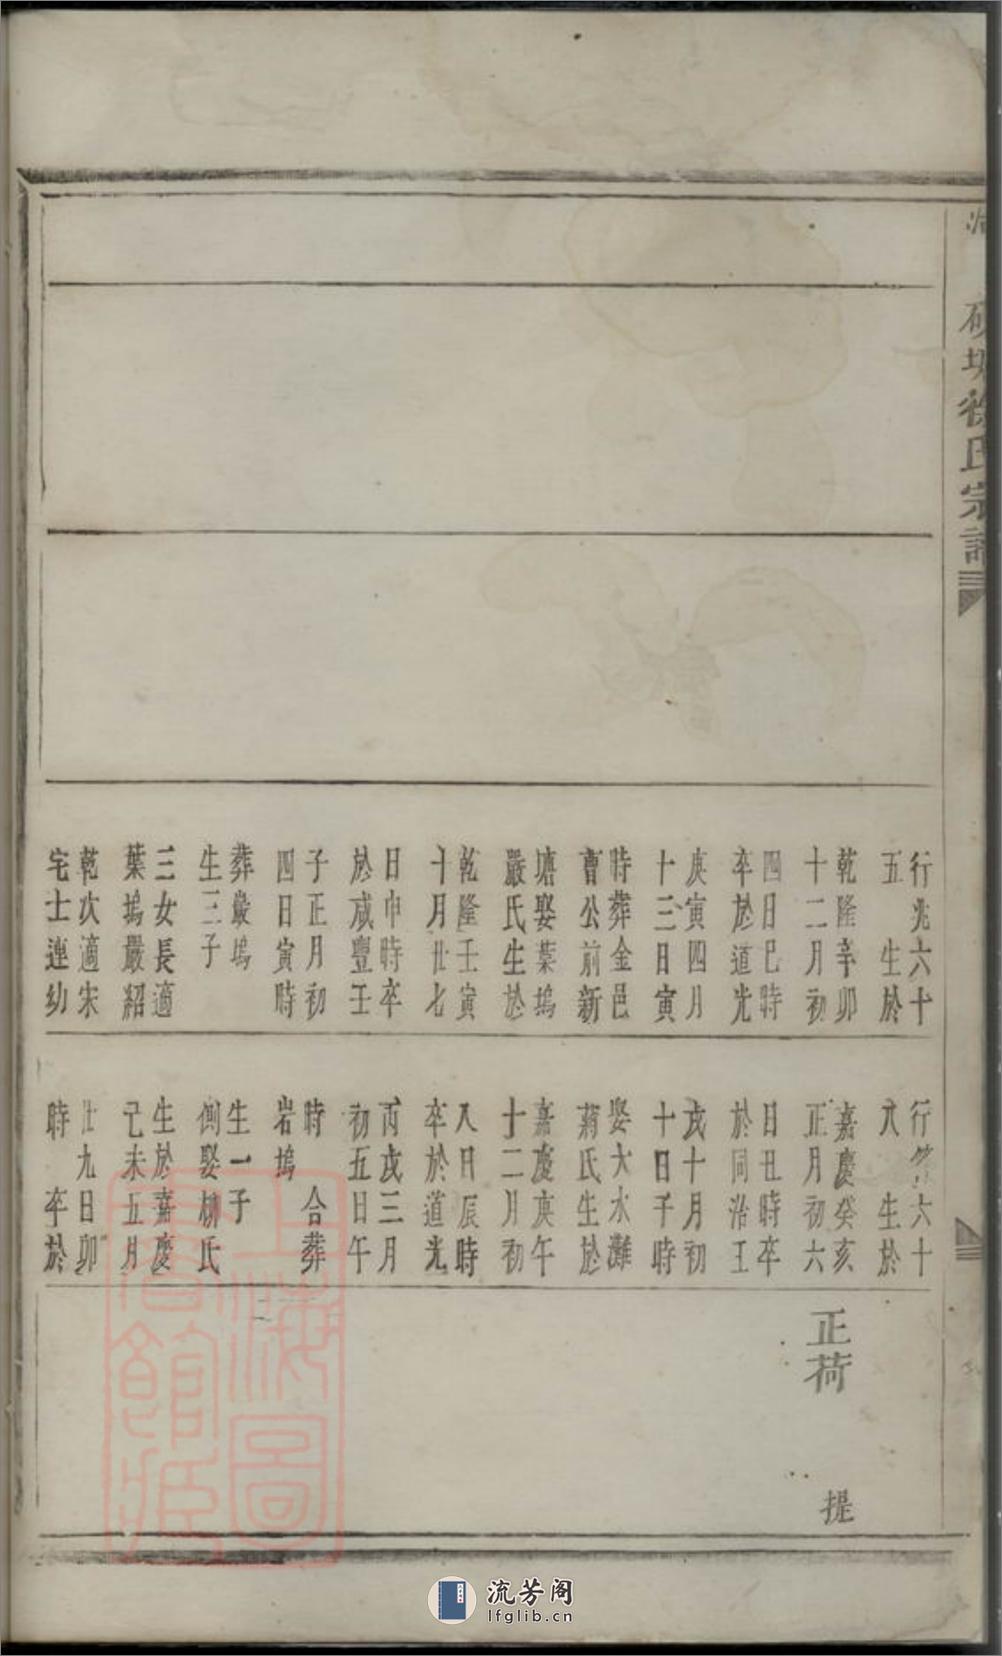 徐氏宗譜
行兆六十
五　生於
乾隆辛卯
十二月初
四日巳時
卒於道光
庚寅四月
十三日寅
時葬金邑
曹公前新
塘娶葉塢
嚴氏生於
乾隆壬寅
十月廿七
日申時卒
於咸豐壬
子正月初
四日寅時
葬嚴塢
生三子
三女長適
葉塢嚴紹
乾次適宋
宅士連幼
行六十
八　生於
嘉慶癸亥
正月初六
日丑時卒
於同治壬
戌十月初
十日午時
娶大水灘
蔣氏生於
嘉慶庚午
十二月初
八日辰時
卒於道光
丙戌三月
初五日午
時　合葬
岩塢
生一子
側娶柳氏
生於嘉慶
己未五月
廿九日卯
時　卒於
正荷
提
上海圖書館藏
流芳阁
lfglib.cn